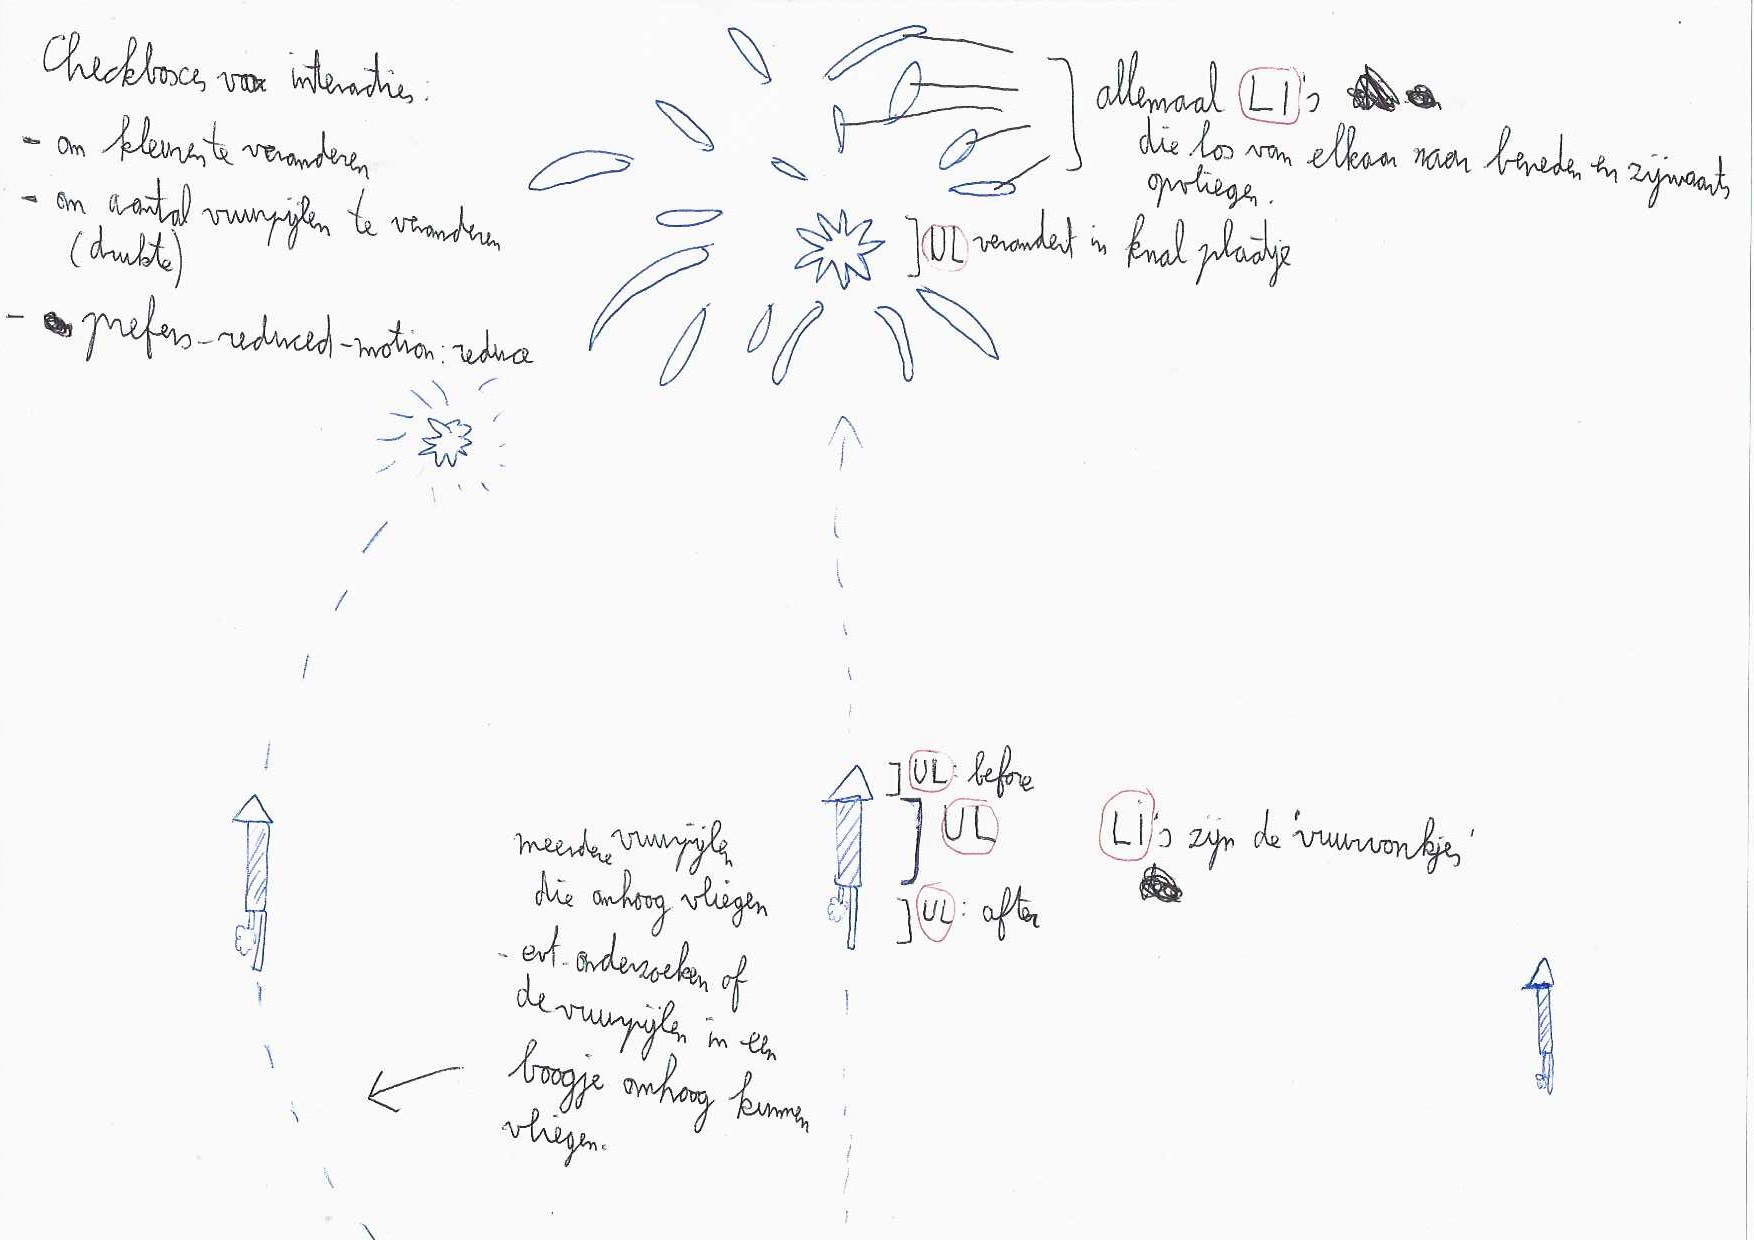 Checkboxes voor interacties:
- om kleuren te veranderen
- om aantal vuurpijlen te veranderen
(drukte)
- prefers-reduced-motion: reduce
allemaal LI's
die los van elkaar naar beneden en zijwaarts
opvliegen.
UL verandert in knal plaatje
UL: before
UL
UL: after
LI's zijn de 'vuurvonkjes'
meerdere vuurpijlen
die omhoog vliegen
- evt. onderzoeken of
de vuurpijlen in een
boogje omhoog kunnen
vliegen.